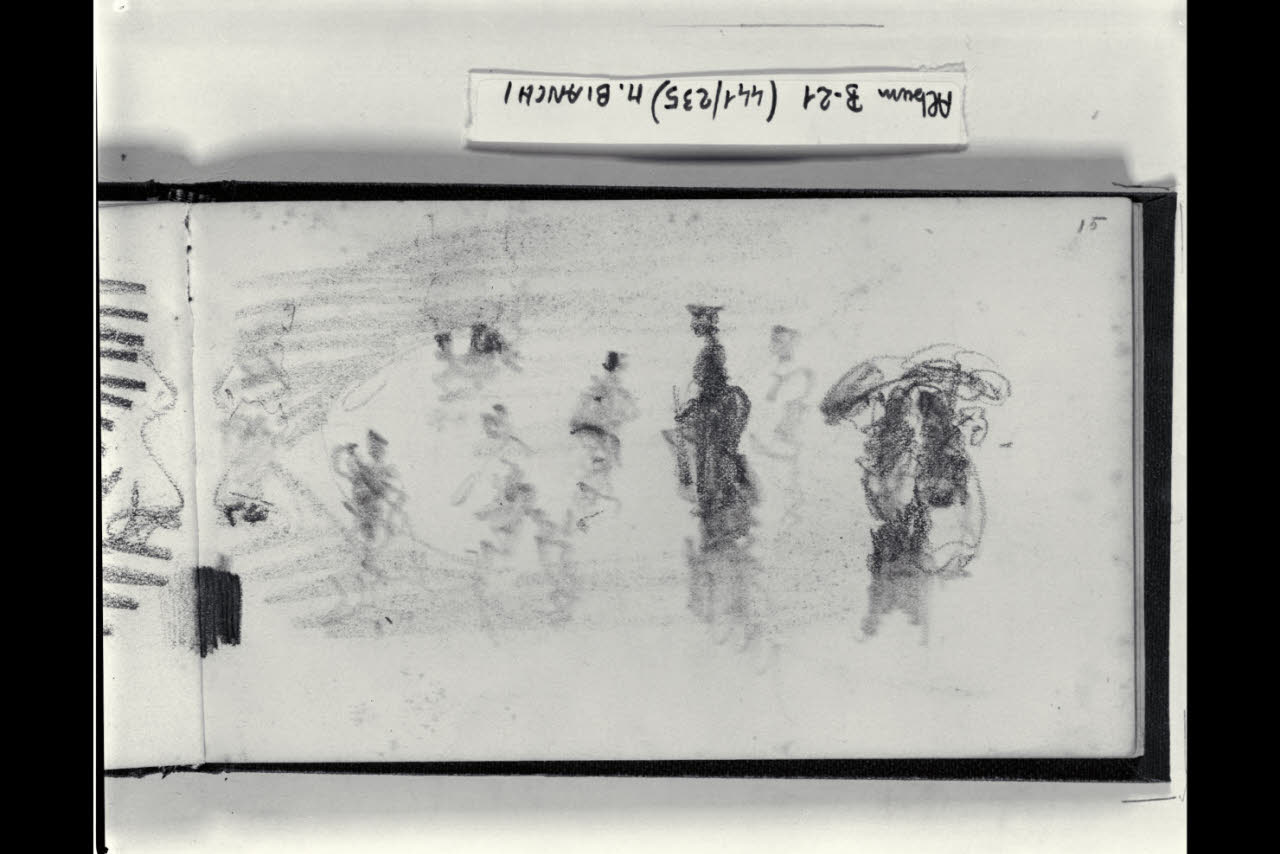 Album B-21 (441/235) M. BIANCHI
15